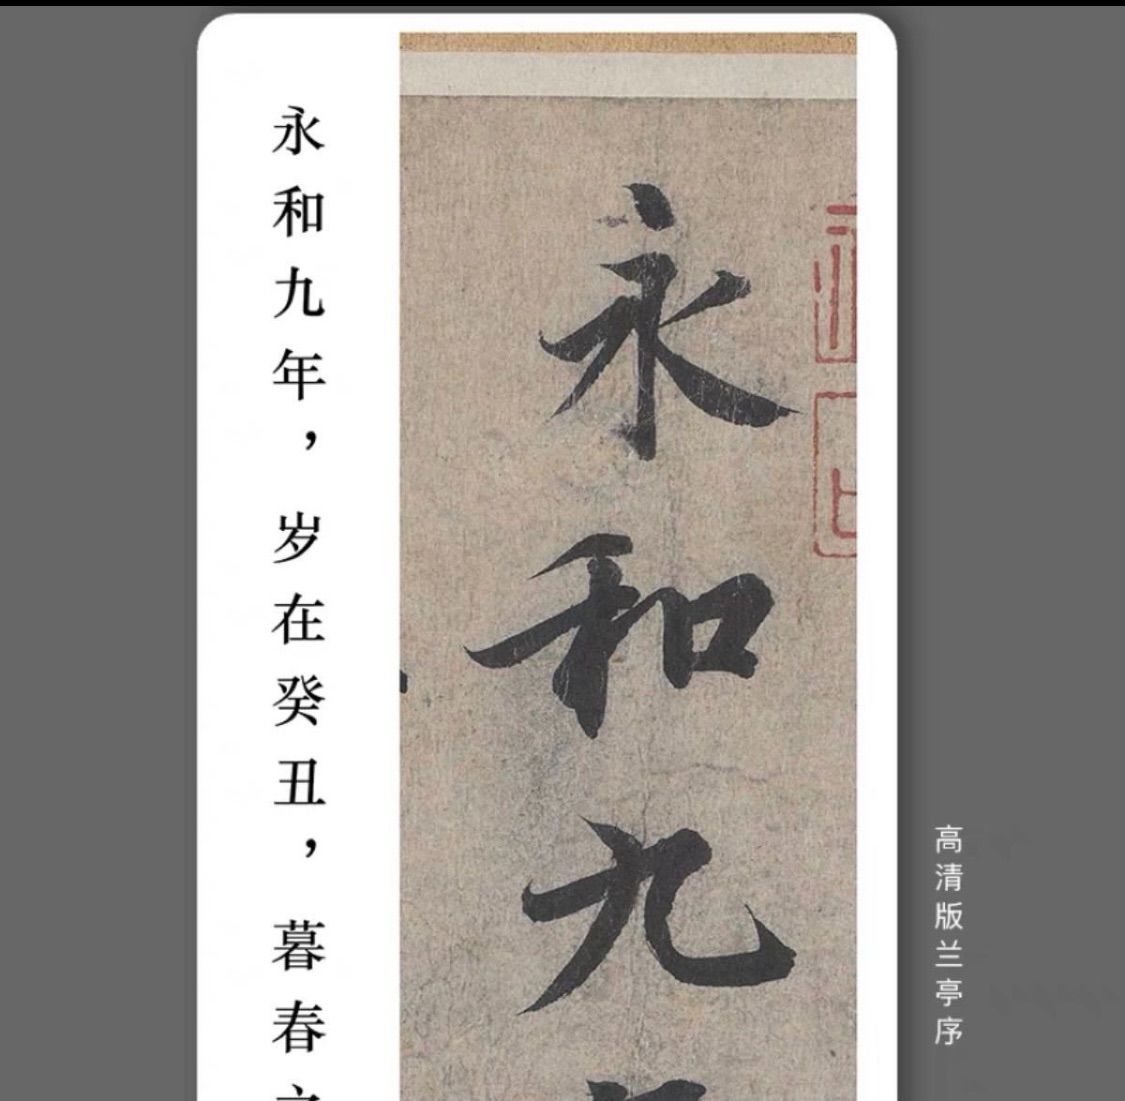 永和九年，岁在癸丑，暮春
永和九
高清版兰亭序